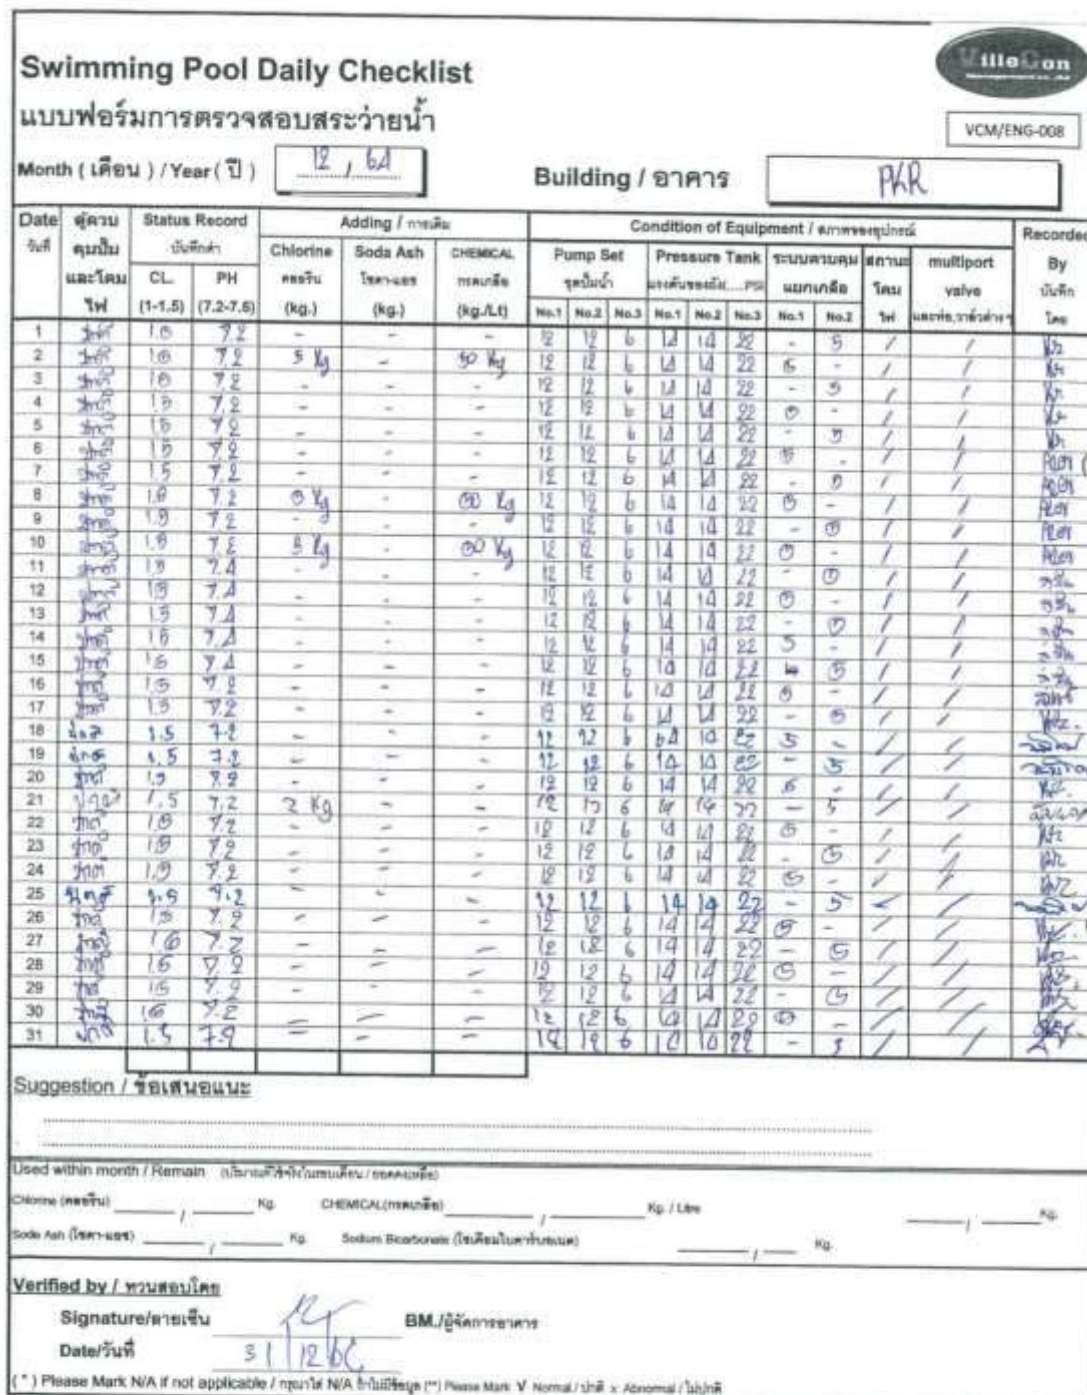 VilleCon
Management co.,ltd
Swimming Pool Daily Checklist
แบบฟอร์มการตรวจสอบสระว่ายน้ำ
VCM/ENG-008
Month ( เดือน ) / Year ( ปี ) 12 / 64
Building / อาคาร PKR
Date ตู้ควบ Status Record Adding / การเติม Condition of Equipment / สภาพของอุปกรณ์ Recorded
วันที่ คุมปั๊ม บันทึกค่า Chlorine Soda Ash CHEMICAL Pump Set Pressure Tank ระบบควบคุม สถานะ multiport By
และโคม CL. PH คลอรีน โซดา-แอช กรดเกลือ ชุดปั๊มน้ำ แรงดันของถัง....PSI แยกเกลือ โคม valve บันทึก
ไฟ (1-1.5) (7.2-7.6) (kg.) (kg.) (kg./Lt) No.1 No.2 No.3 No.1 No.2 No.3 No.1 No.2 ไฟ และท่อ,วาล์วต่างๆ โดย
1 ปกติ 1.5 7.2 - - - 12 12 6 14 14 22 - 5 / /
2 ปกติ 1.5 7.2 5 Kg - 50 Kg 12 12 6 14 14 22 5 - / /
3 ปกติ 1.5 7.2 - - - 12 12 6 14 14 22 - 5 / /
4 ปกติ 1.5 7.2 - - - 12 12 6 14 14 22 5 - / /
5 ปกติ 1.5 7.2 - - - 12 12 6 14 14 22 - 5 / /
6 ปกติ 1.5 7.2 - - - 12 12 6 14 14 22 5 - / /
7 ปกติ 1.5 7.2 - - - 12 12 6 14 14 22 - 5 / /
8 ปกติ 1.5 7.2 5 Kg - 50 Kg 12 12 6 14 14 22 5 - / /
9 ปกติ 1.5 7.2 - - - 12 12 6 14 14 22 - 5 / /
10 ปกติ 1.5 7.2 5 Kg - 50 Kg 12 12 6 14 14 22 5 - / /
11 ปกติ 1.5 7.4 - - - 12 12 6 14 14 22 - 5 / /
12 ปกติ 1.5 7.4 - - - 12 12 6 14 14 22 5 - / /
13 ปกติ 1.5 7.4 - - - 12 12 6 14 14 22 - 5 / /
14 ปกติ 1.5 7.4 - - - 12 12 6 14 14 22 5 - / /
15 ปกติ 1.5 7.4 - - - 12 12 6 14 14 22 - 5 / /
16 ปกติ 1.5 7.2 - - - 12 12 6 14 14 22 5 - / /
17 ปกติ 1.5 7.2 - - - 12 12 6 14 14 22 - 5 / /
18 ปกติ 1.5 7.2 - - - 12 12 6 14 14 22 5 - / /
19 ปกติ 1.5 7.2 - - - 12 12 6 14 14 22 - 5 / /
20 ปกติ 1.5 7.2 - - - 12 12 6 14 14 22 5 - / /
21 ปกติ 1.5 7.2 2 Kg - - 12 12 6 14 14 22 - 5 / /
22 ปกติ 1.5 7.2 - - - 12 12 6 14 14 22 5 - / /
23 ปกติ 1.5 7.2 - - - 12 12 6 14 14 22 - 5 / /
24 ปกติ 1.5 7.2 - - - 12 12 6 14 14 22 5 - / /
25 ปกติ 1.5 7.2 - - - 12 12 6 14 14 22 - 5 / /
26 ปกติ 1.5 7.2 - - - 12 12 6 14 14 22 5 - / /
27 ปกติ 1.5 7.2 - - - 12 12 6 14 14 22 - 5 / /
28 ปกติ 1.5 7.2 - - - 12 12 6 14 14 22 5 - / /
29 ปกติ 1.5 7.2 - - - 12 12 6 14 14 22 - 5 / /
30 ปกติ 1.5 7.2 - - - 12 12 6 14 14 22 5 - / /
31 ปกติ 1.5 7.2 - - - 12 12 6 14 14 22 - 5 / /
Suggestion / ข้อเสนอแนะ
Used within month / Remain (ปริมาณที่ใช้ไปในรอบเดือน / ยอดคงเหลือ)
Chlorine (คลอรีน) / Kg. CHEMICAL(กรดเกลือ) / Kg. / Litre / Kg.
Soda Ash (โซดา-แอช) / Kg. Sodium Bicarbonate (โซเดียมไบคาร์บอเนต) / Kg.
Verified by / ทวนสอบโดย
Signature/ลายเซ็น BM./ผู้จัดการอาคาร
Date/วันที่ 31 12 64
( * ) Please Mark N/A if not applicable / กรุณาใส่ N/A ถ้าไม่มีข้อมูล (**) Please Mark V Normal / ปกติ x Abnormal / ไม่ปกติ